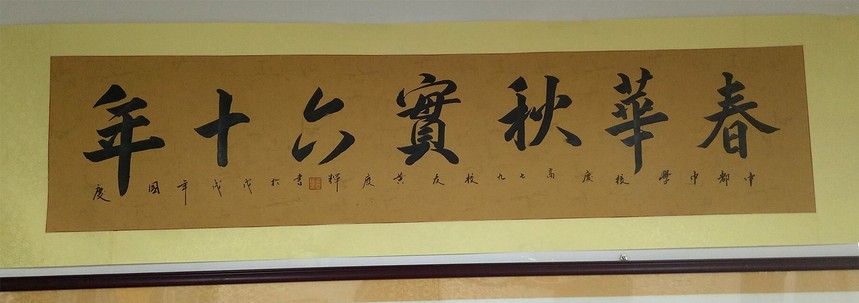 春華秋實六十年
中都中學校慶高七九校友黄度輝書於戊戌年國慶